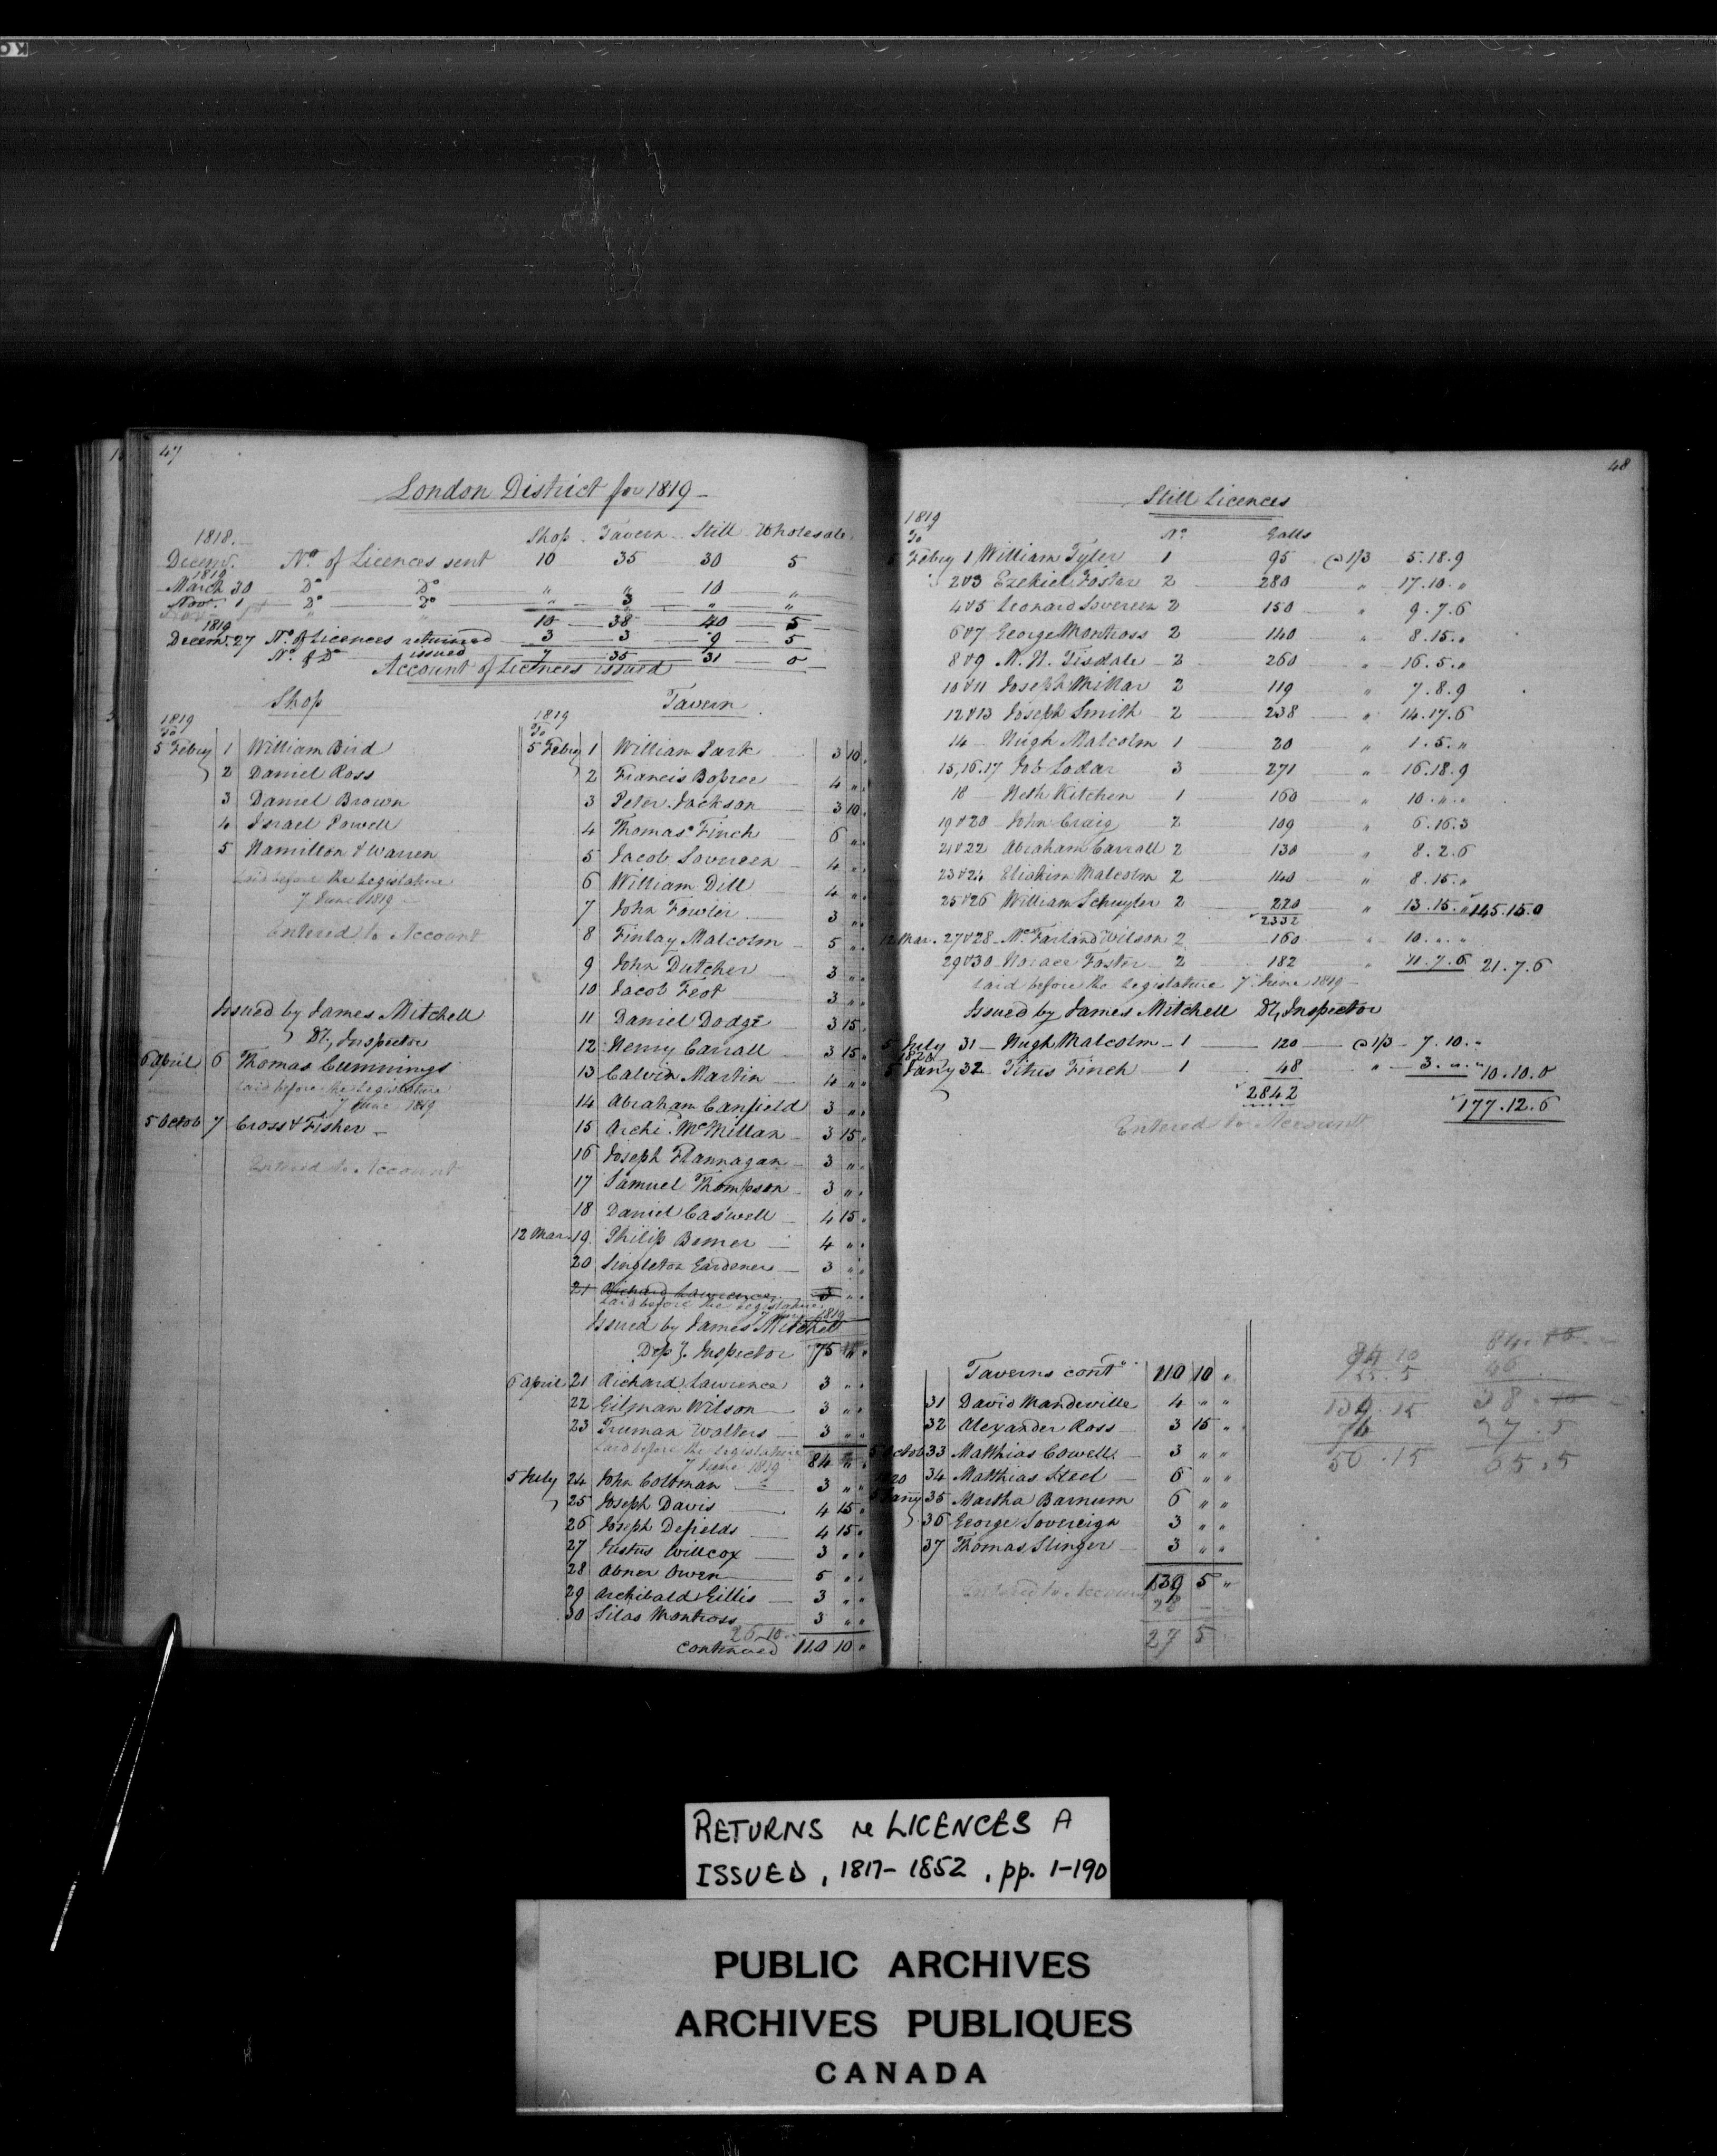 47
London District for 1819
1818. Shop Tavern Still Wholesale
Decemr. No. of Licences sent 10 35 30 5
1819
March 30 Do Do " " 10 "
Novr. 1 Do Do " 3 " "
10 38 40 5
1819
Decemr. 27 No. of Licences returned 3 3 9 5
No. of Do issued 7 35 31 0
Account of Licences issued
Shop
1819
To
5 Febry 1 William Bird
2 Daniel Ross
3 Daniel Brown
4 Israel Powell
5 Hamilton & Warren
Laid before the Legislature
7 June 1819
Entered to Account
Issued by James Mitchell
Dy. Inspector
6 April 6 Thomas Cummings
Laid before the Legislature
7 June 1819
5 Octob 7 Cross & Fisher
Entered to Account
Tavern
1819
To
5 Febry 1 William Park 3 10 "
2 Francis Bopree 4 " "
3 Peter Jackson 3 10 "
4 Thomas Finch 6 " "
5 Jacob Sovereen 4 " "
6 William Dill 4 " "
7 John Fowler 3 " "
8 Finlay Malcolm 5 " "
9 John Dutcher 3 " "
10 Jacob Feot 3 " "
11 Daniel Dodge 3 15 "
12 Henry Carrall 3 15 "
13 Calvin Martin 4 " "
14 Abraham Canfield 3 " "
15 Archi. McMillan 3 15 "
16 Joseph Flannagan 3 " "
17 Samuel Thompson 3 " "
18 Daniel Caswell 4 15 "
12 Mar. 19 Philip Bemer 4 " "
20 Singleton Gardener 3 " "
21 Richard Lawrence 3 " "
Laid before the Legislature
7 June 1819
Issued by James Mitchell
Depy. Inspector 75
6 April 21 Richard Lawrence 3 " "
22 Gilman Wilson 3 " "
23 Truman Walters 3 " "
Laid before the Legislature
7 June 1819 84
5 July 24 John Coltman 3 " "
25 Joseph Davis 4 15 "
26 Joseph Defields 4 15 "
27 Justus Willcox 3 " "
28 Abner Owen 5 " "
29 Archibald Gillis 3 " "
30 Silas Montross 3 " "
26.10
Continued 110 10 "
48
Still Licences
1819
To No. Galls
5 Febry 1 William Tyler 1 95 @ 1/3 5.18.9
2 & 3 Ezekiel Foster 2 280 " 17.10."
4 & 5 Leonard Sovereen 2 150 " 9.7.6
6 & 7 George Montross 2 140 " 8.15."
8 & 9 N. N. Tisdale 2 260 " 16.5."
10 & 11 Joseph Millar 2 119 " 7.8.9
12 & 13 Joseph Smith 2 238 " 14.17.6
14 Hugh Malcolm 1 20 " 1.5."
15,16,17 Job Lodar 3 271 " 16.18.9
18 Heth Kitchen 1 160 " 10."."
19 & 20 John Craig 2 109 " 6.16.3
21 & 22 Abraham Carrall 2 130 " 8.2.6
23 & 24 Eliakim Malcolm 2 140 " 8.15."
25 & 26 William Schuyler 2 220 " 13.15." 145.15.0
2332
12 Mar. 27 & 28 McFarland Wilson 2 160 " 10."."
29 & 30 Horace Foster 2 182 " 11.7.6 21.7.6
Laid before the Legislature 7 June 1819
Issued by James Mitchell Dy. Inspector
5 July 31 Hugh Malcolm 1 120 @ 1/3 7.10."
1820
5 Jany 32 Titus Finch 1 48 " 3."." 10.10.0
2842 177.12.6
Entered to Account
Taverns contd. 110 10 "
31 David Mandeville 4 " "
32 Alexander Ross 3 15 "
5 Octob 33 Matthias Cowell 3 " "
34 Matthias Steel 6 " "
1820
5 Jany 35 Martha Barnum 6 " "
36 George Sovereign 3 " "
37 Thomas Slinger 3 " "
Entered to Account 139 5 "
27 5
134.15
50.15
27.5
65.5
RETURNS re LICENCES A
ISSUED, 1817-1852, pp. 1-190
PUBLIC ARCHIVES
ARCHIVES PUBLIQUES
CANADA